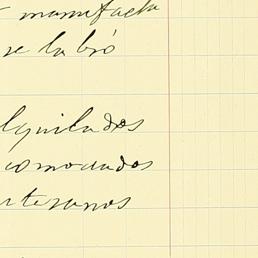 manufacta
se labró
lquilados
comodados
rtezanos